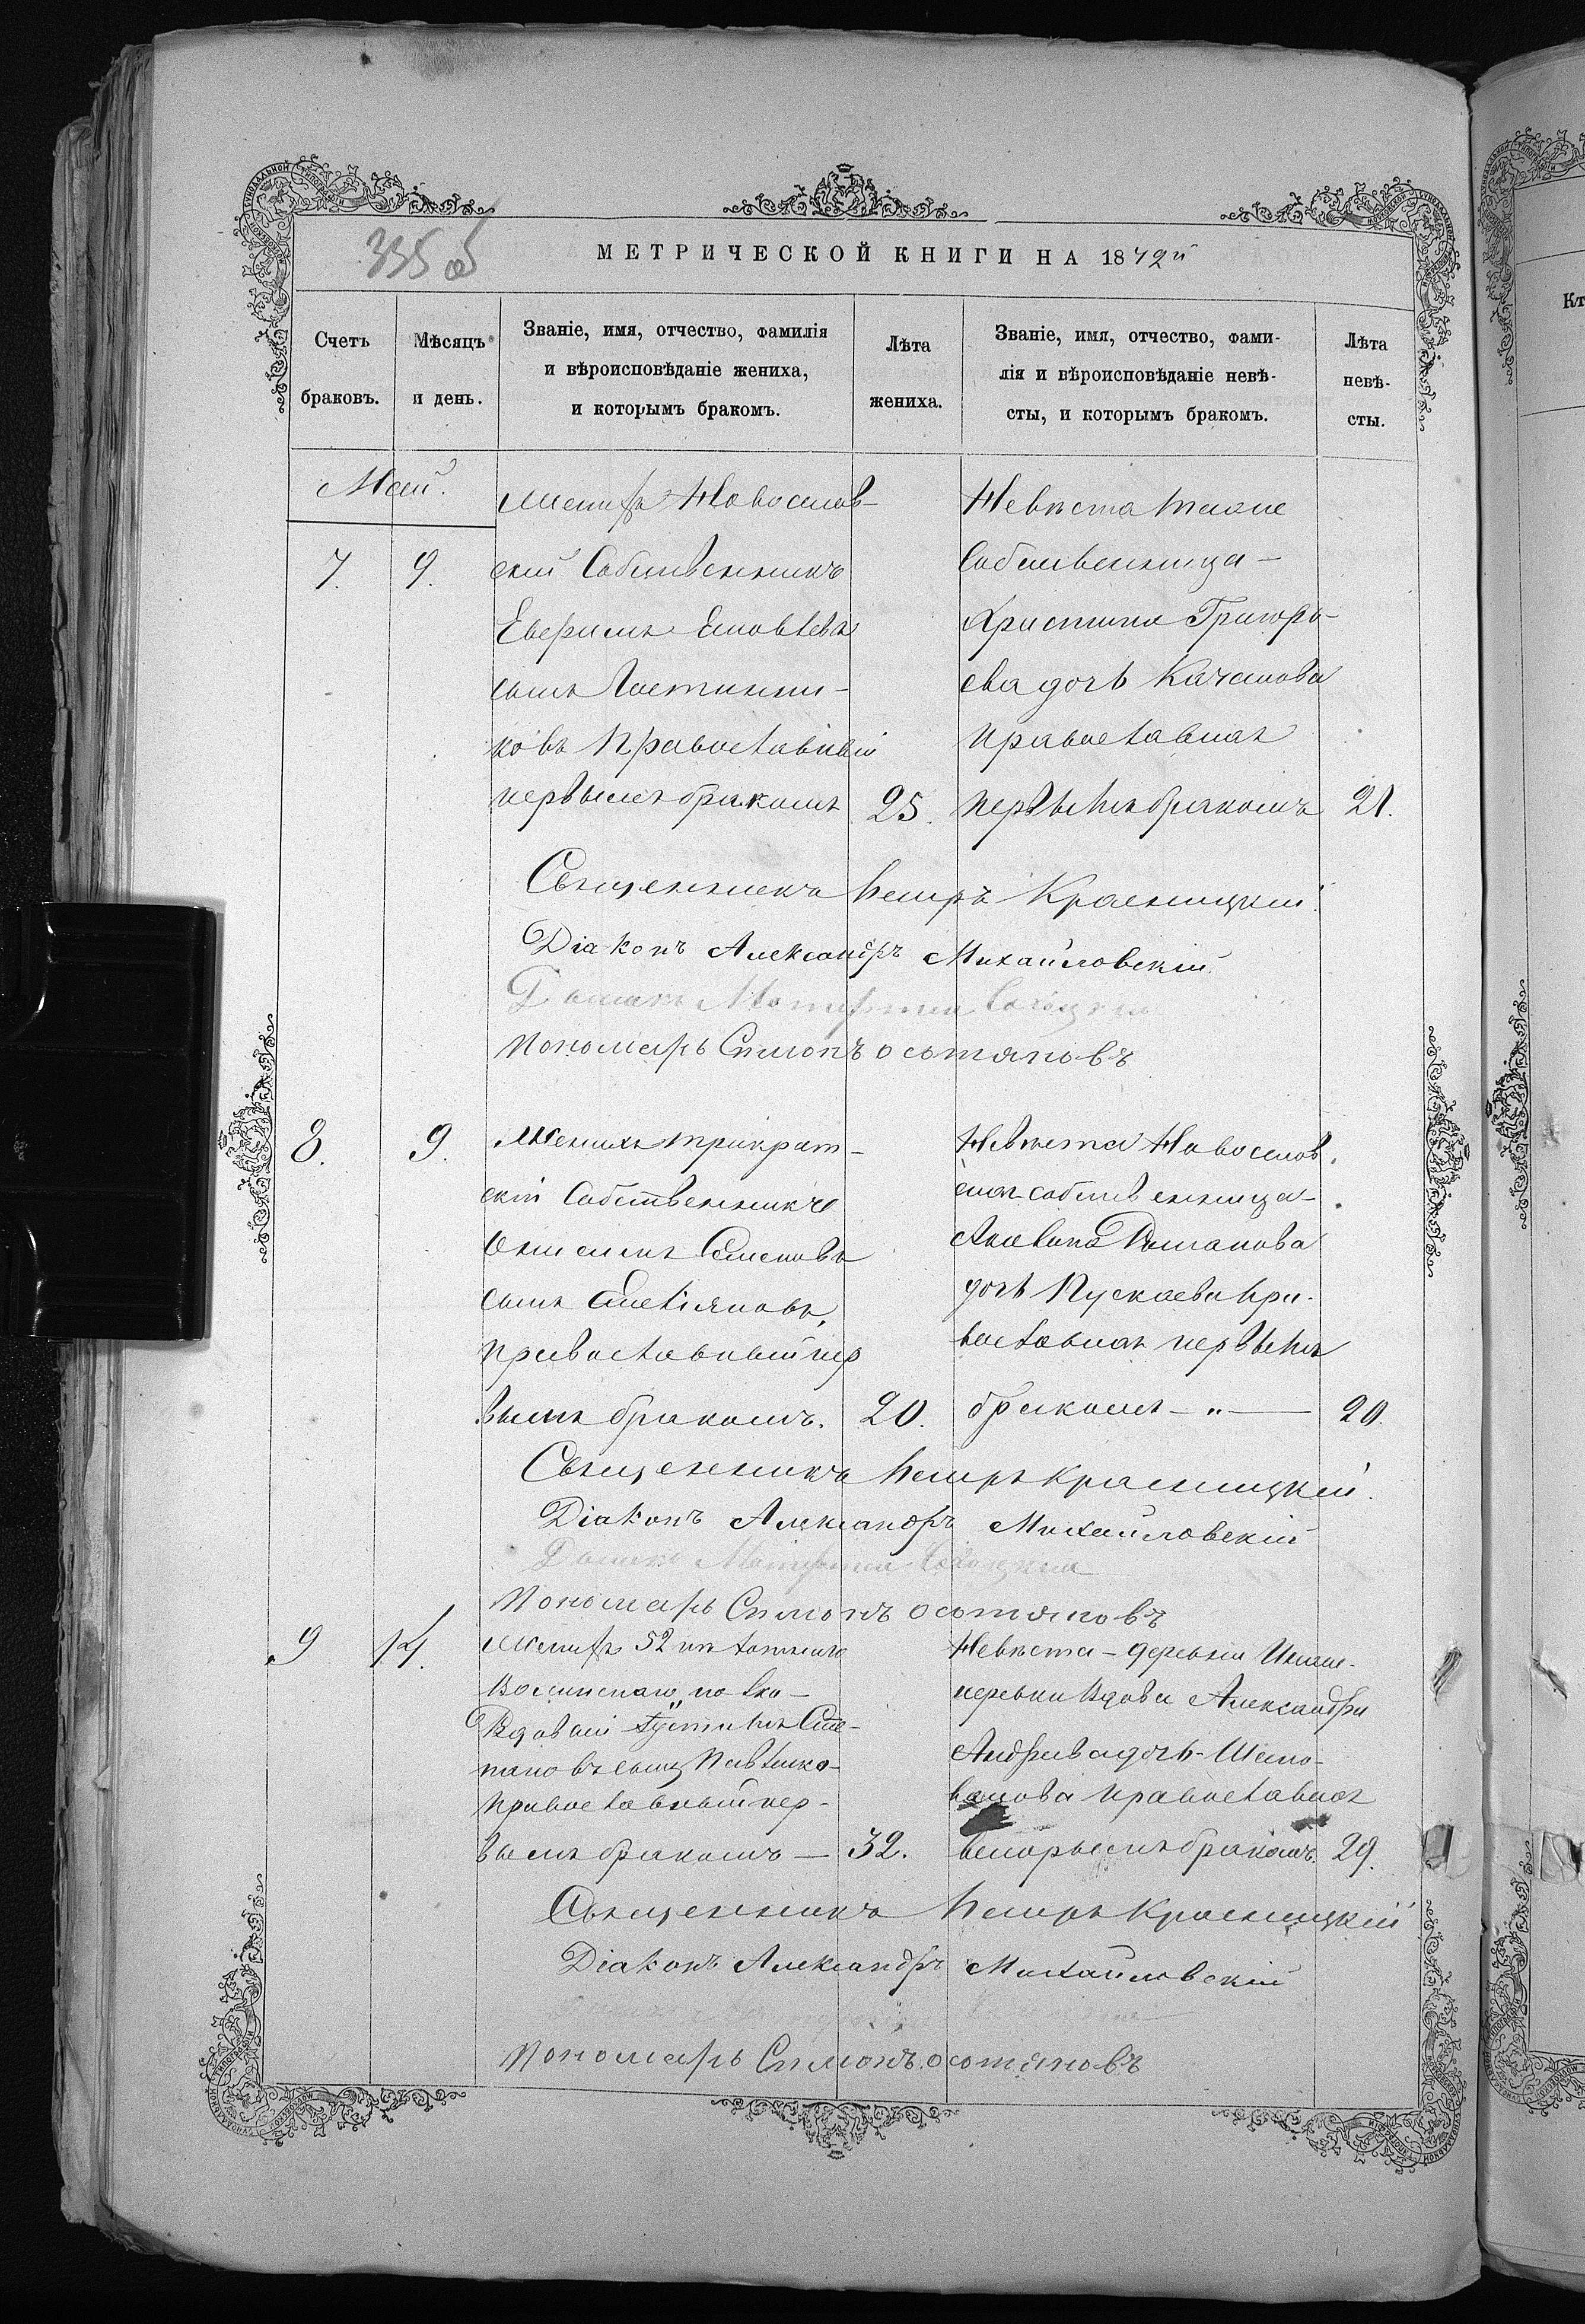 335 об
МЕТРИЧЕСКОЙ КНИГИ НА 1872й
Счетъ браковъ.
Мѣсяцъ и день.
Званіе, имя, отчество, фамилія
и вѣроисповѣданіе жениха,
и которымъ бракомъ.
Лѣта жениха.
Званіе, имя, отчество, фами-
лія и вѣроисповѣданіе невѣ-
сты, и которымъ бракомъ.
Лѣта невѣ-
сты.
Май.
7. 9.
Женихъ Новоселов-
скій Собственникъ
сынъ Постинни-
ковъ Православный
первымъ бракомъ 25.
Невѣста такая
Собственница
Христина Григорь-
ева дочь Качанова
Православная
первымъ бракомъ 21.
Священникъ Петръ Красницкій.
Діаконъ Александръ Михайловскій
Пономарь Симонъ Осотяновъ
8. 9.
Женихъ трикрат-
скій Собственникъ
Онисимъ Семеновъ
сынъ
Православный пер
вымъ бракомъ. 20.
Невѣста Новоселов
ская собственница
Акилина Романова
дочь Пускаева Пра-
вославная первымъ
бракомъ — „ — 20.
Священникъ Петръ Красницкій.
Діаконъ Александръ Михайловскій
Пономарь Симонъ Осотяновъ
9 14.
Женихъ 52 пѣхотнаго
Виленскаго полка
Рядовой Густинъ Сте-
пановъ сынъ Павленко
Православный пер-
вымъ бракомъ — 32.
Невѣста деревни
Вдова Александра
Андреева дочь Шепо-
валова Православная
вторымъ бракомъ. 29.
Священникъ Петръ Красницкій
Діаконъ Александръ Михайловскій
Пономарь Симонъ Осотяновъ